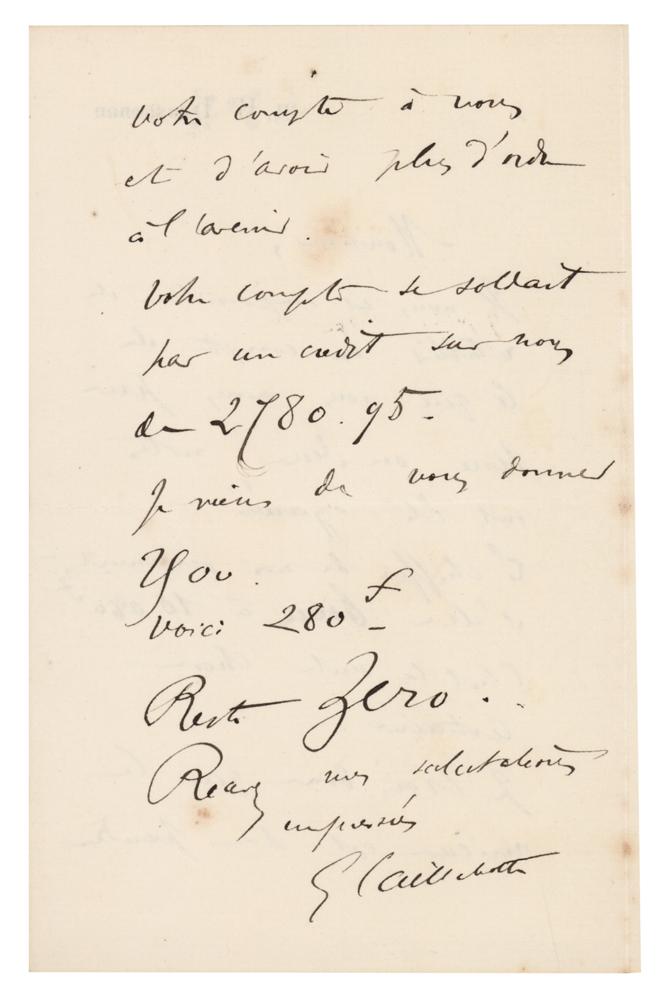 votre compte à nous
et d'avoir plus d'ordre
à l'avenir.
Votre compte se soldait
par un credit sur nous
de 2780.95.
Je viens de vous donner
2500.
voici 280 f
Reste Zero.
Recevez mes salutations
empressées
G Caillebotte